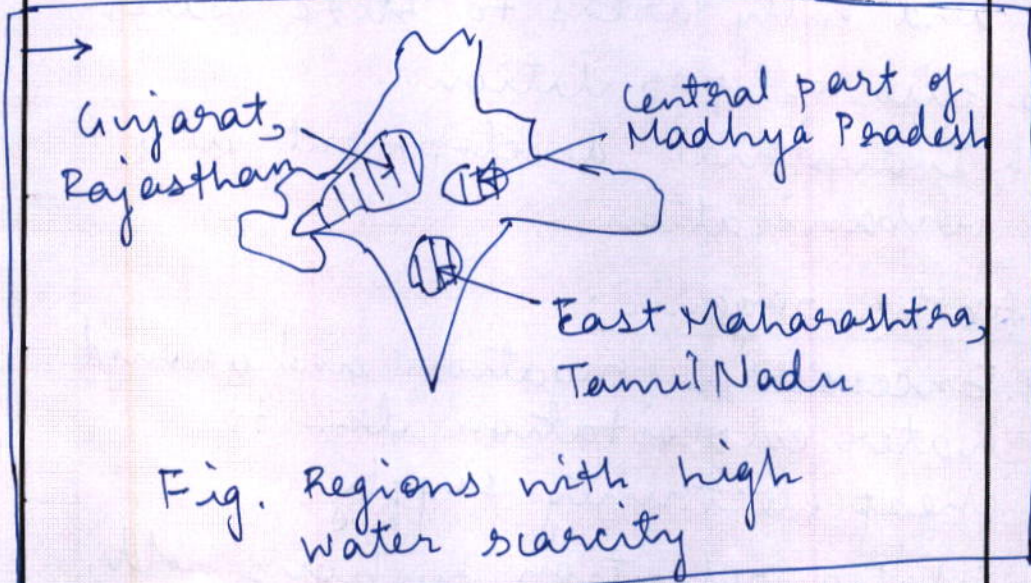 Gujarat,
Rajasthan
Central part of
Madhya Pradesh
East Maharashtra,
Tamil Nadu
Fig. Regions with high
water scarcity